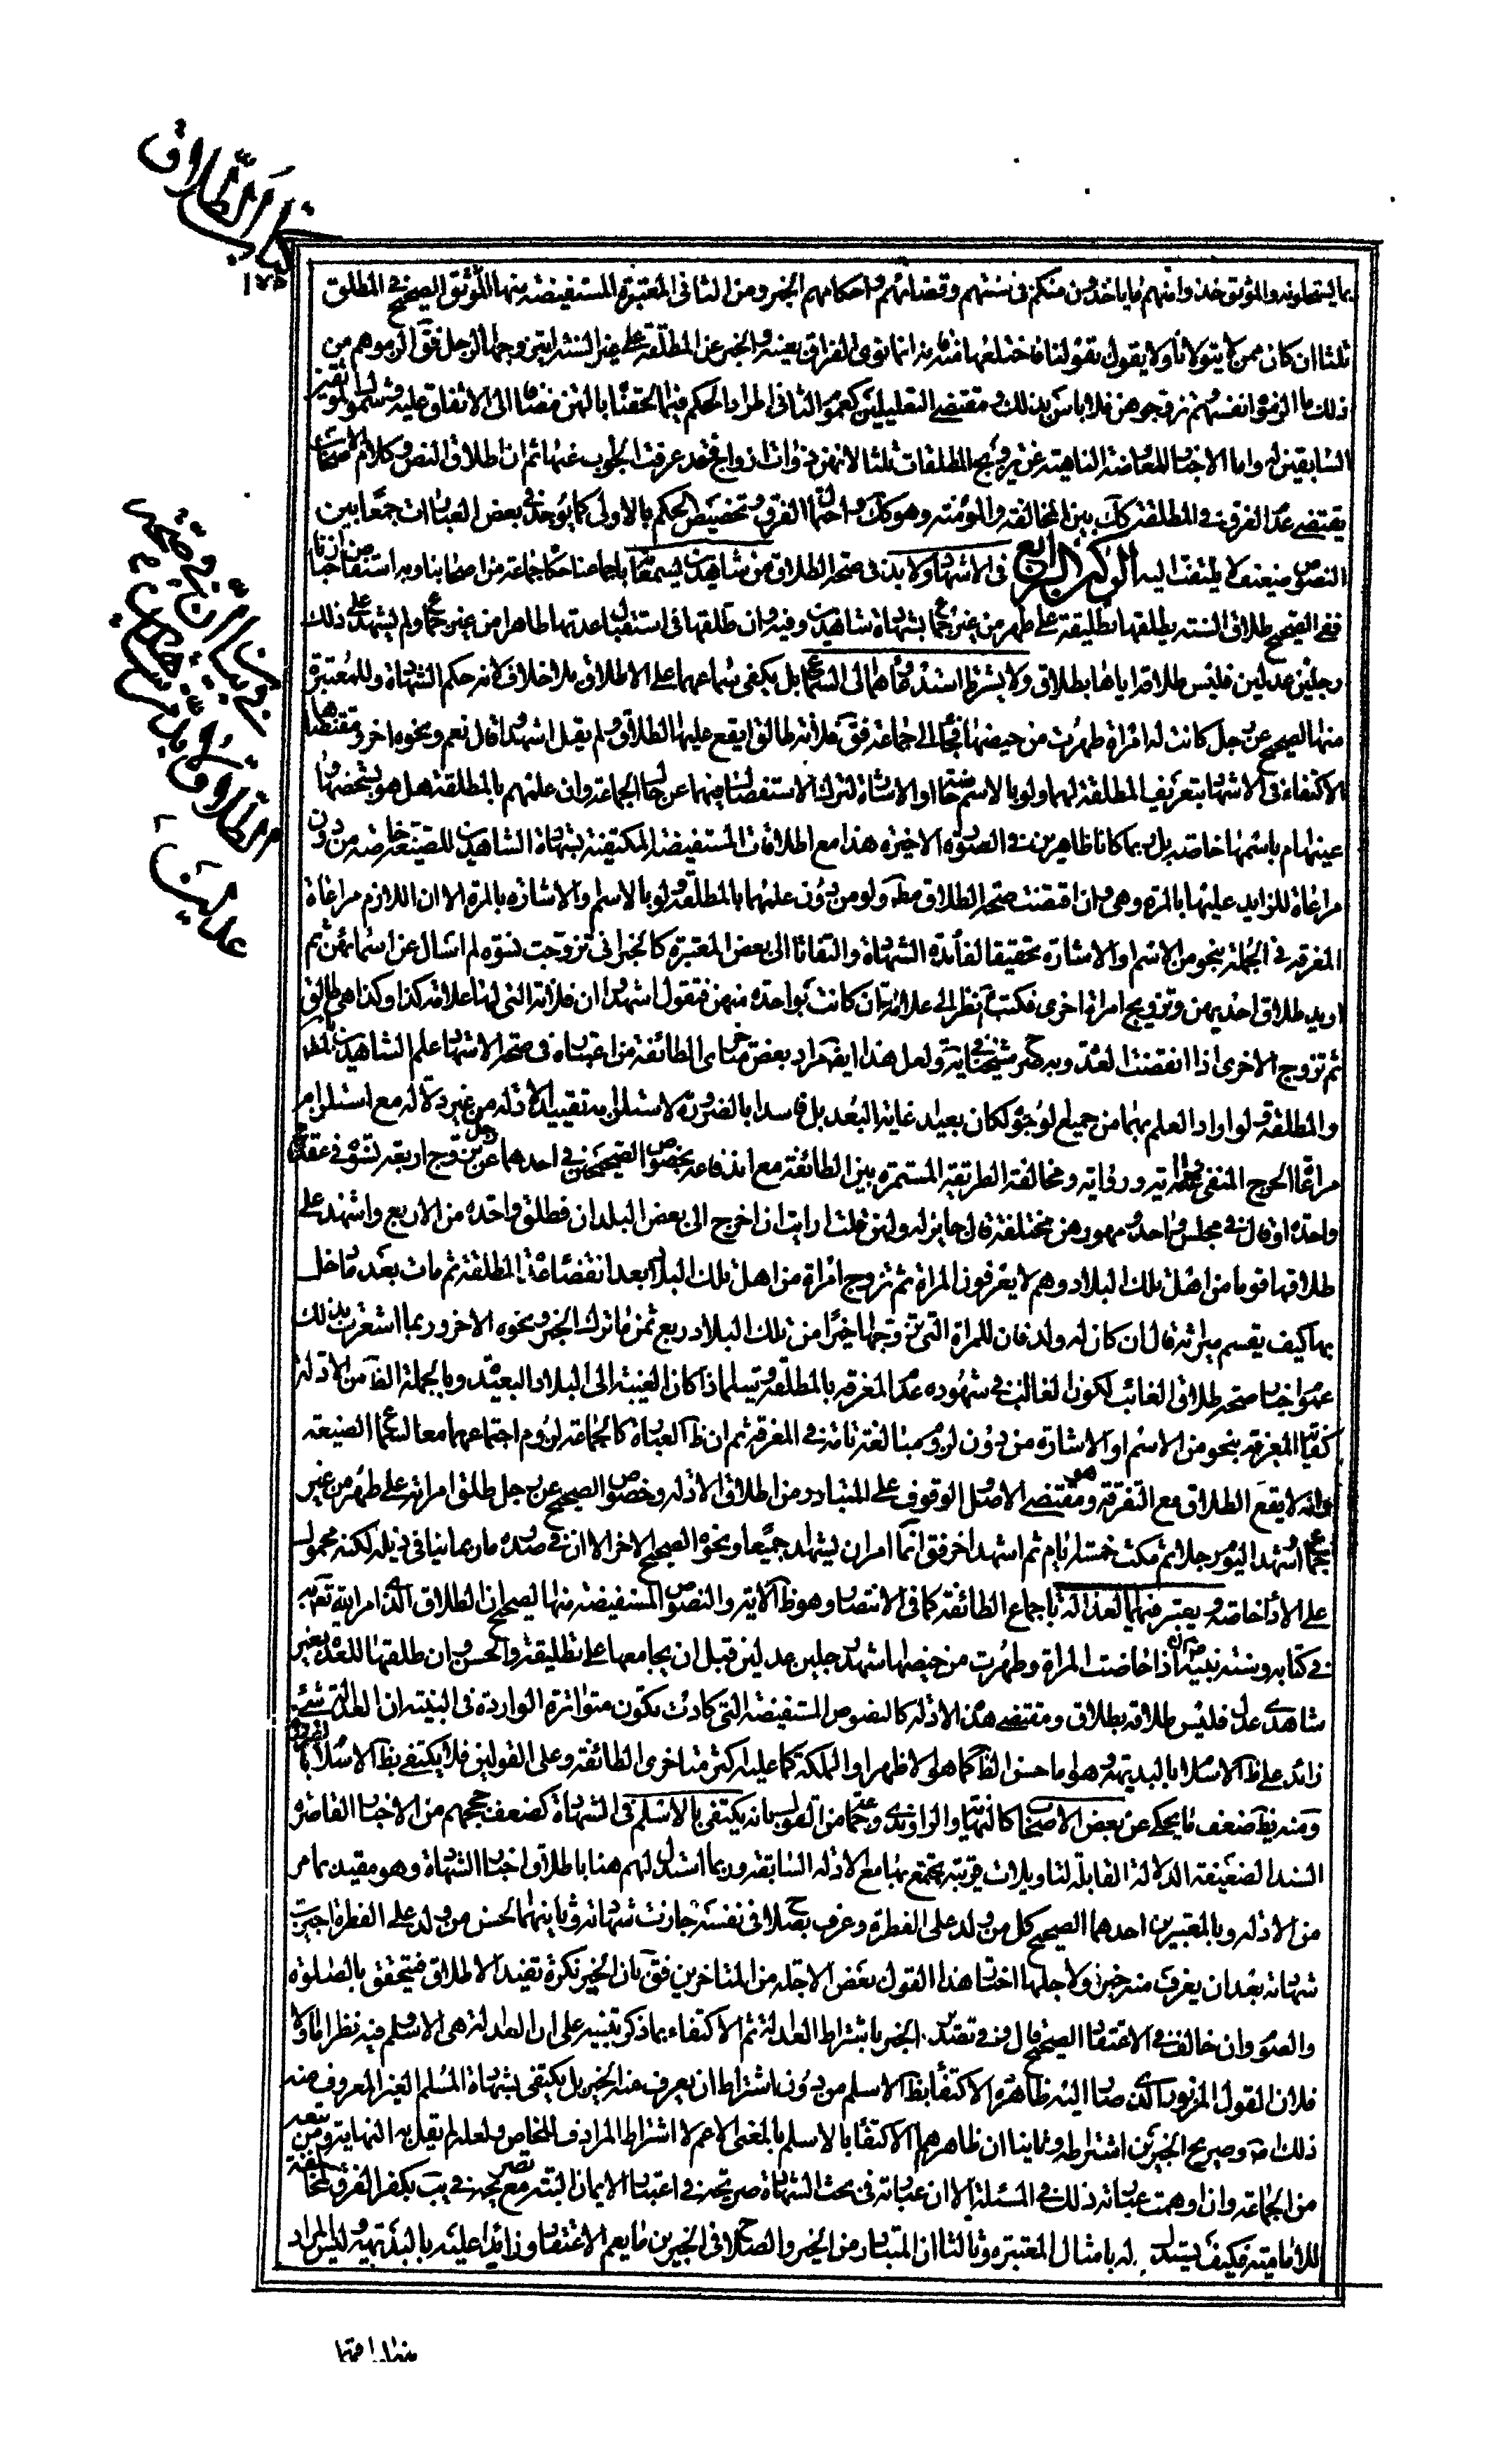 كتاب الطلاق
١٧٥
بما يستحلونه والموثق خذوا منهم ما يأخذون منكم في سنتهم وقضائهم واحكامهم الخبر ومن الثاني المعتبرة المستفيضة منها الموثق الصحيح في المطلق
ثلثا ان كان ممن لا يتولانا ولا يقول بقولنا فاختلعها منه فانه انما نوى الفراق بعينه والخبر عن المطلقة على غير السنة ايتزوجها الرجل فق الزموهم من
ذلك ما الزموه انفسهم تزوجوهن فلا باس بذلك ومقتضى التعليلين كعموم الثاني اطراد الحكم فيما الحقنا بالمتن مضافا الى الاتفاق عليه
السابقين له واما الاخبار المعارضة الناهية عن تزويج المطلقات ثلثا لانهن ذوات ازواج فقد عرفت الجواب عنها ثم ان اطلاق النص وكلام الاصحاب
يقتضي عدم الفرق في المطلقة كك بين المخالفة والمؤمنة وهو كك واحتمال الفرق وتخصيص الحكم بالاولى كما يوجد في بعض العبارات جمعا بين
النصوص ضعيف لا يلتفت اليه الركن الرابع في الاشهاد ولا بد في صحة الطلاق من شاهدين يسمعانه باجماعنا حكاه جماعة من اصحابنا وبه استفاض اخبارنا
ففي الصحيح طلاق السنة يطلقها تطليقة على طهر من غير جماع بشهادة شاهدين وفيه وان طلقها في استقبال عدتها طاهرا من غير جماع ولم يشهد على ذلك
رجلين عدلين فليس طلاقه اياها بطلاق ولا يشترط استدعائهما الى السماع بل يكفي سماعهما على الاطلاق بلا خلاف لانه حكم الشهادة وللمعتبرة
منها الصحيح عن رجل كانت له امراة طهرت من حيضها فجاء الى جماعة فق فلانة طالق ايقع عليها الطلاق ولم يقل اشهدوا قال نعم ونحوه اخر ومقتضاهما
الاكتفاء في الاشهاد بتعريف المطلقة لهما ولو بالاسم خاصة او الاشارة لترك الاستفصال فيهما عن حال الجماعة وان علمهم بالمطلقة هل هو بشخصها و
عينها ام باسمها خاصة بل ربما كانا ظاهرين في الصورة الاخيرة هذا مع اطلاقات المستفيضة المكتفية بشهادة الشاهدين للصيغة خاصة من دون
مراعاة للزايد عليها بالمرة وهي وان اقتضت صحة الطلاق مطلقا ولو من دون علمهما بالمطلقة ولو بالاسم والاشارة بالمرة الا ان اللازم مراعاة
المعرفة في الجملة بنحو من الاسم او الاشارة تحقيقا لفائدة الشهادة والتفاتا الى بعض المعتبرة كالخبر اني تزوجت نسوة لم اسال عن اسمائهن ثم
اريد طلاق احديهن وتزويج امراة اخرى فكتب انظر الى علامة ان كانت بواحدة منهن فتقول اشهدوا ان فلانة التي لها علامة كذا وكذا هي طالق
ثم تزوج الاخرى اذا انقضت العدة وبه صرح شيخنا في نهايته ولعل هذا ايضا مراد بعض متاخري الطائفة من اعتباره في صحة الاشهاد علم الشاهدين بالمطلق
والمطلقة ولو اراد العلم بهما من جميع الوجوه لكان بعيدا غاية البعد بل فاسدا بالضرورة لاستلزامه تقييد الادلة من غير دلالة مع استلزام
مراعاتها الحرج المنفي اية ورواية ومخالفة الطريقة المستمرة بين الطائفة مع اندفاعه بخصوص الصحيحين في احدهما عن رجل تزوج اربعة نسوة في عقدة
واحدة او قال في مجلس واحد ومهورهن مختلفة قال جايز له ولهن قلت ارايت ان خرج الى بعض البلدان فطلق واحدة من الاربع واشهد على
طلاقها قوما من اهل تلك البلاد وهم لا يعرفون المراة ثم تزوج امراة من اهل تلك البلاد بعد انقضاء عدة المطلقة ثم مات بعد ما دخل
بها كيف يقسم ميراثه قال ان كان له ولد فان للمراة التي تزوجها اخيرا من تلك البلاد ربع ثمن ما ترك الخبر ونحوه الاخر وربما اشعر بذلك
عموم اخبار صحة طلاق الغائب لكون الغالب في شهوده عدم المعرفة بالمطلقة وسيما اذا كان الغيبة الى البلاد البعيدة وبالجملة الظ من الادلة
كفاية المعرفة بنحو من الاسم او الاشارة من دون لزوم مبالغة تامة في المعرفة ثم ان ظ العبارة كالجماعة لزوم اجتماعهما معا لسماع الصيغة
وانه لا يقع الطلاق مع التفرقة وهو مقتضى الاصل الوقوف على المتبادر من اطلاق الادلة وخصوص الصحيح عن رجل طلق امراته على طهر من غير
جماع اشهد اليوم رجلا ثم مكث خمسة ايام ثم اشهد اخر فق انما امر ان يشهدا جميعا ونحوه الصحيح الاخر الا ان في صدره ما ربما ينافي ذيله لكنه محمول
على الاداء خاصة ويعتبر فيهما العدالة باجماع الطائفة كما في الانتصار وهو ظ الاية والنصوص المستفيضة منها الصحيح ان الطلاق الذي امر الله تعالى به
في كتابه وسنة نبيه اذا حاضت المراة وطهرت من حيضها اشهد رجلين عدلين قبل ان يجامعها على تطليقة والحسن وان طلقها للعدة بغير
شاهدي عدل فليس طلاقه بطلاق ومقتضى هذه الادلة كالنصوص المستفيضة التي كادت تكون متواترة الواردة في البينة ان العدالة شيء
زائد على ظ الاسلام بالبديهة وهو اما حسن الظ كما هو الاظهر او الملكة كما عليه اكثر متاخري الطائفة وعلى القولين فلا يكتفي بظ الاسلام
ومنه يظ ضعف ما يحكى عن بعض الاصحاب كالنهاية والراوندي وغيرهما من القول بانه يكتفي بالاسلام في الشهادة كضعف حججهم من الاخبار القاصرة
السند الضعيفة الدلالة القابلة لتاويلات قريبة تجتمع بها مع الادلة السابقة وربما استدل لهم هنا باطلاق اخبار الشهادة وهو مقيد بما مر
من الادلة وبالمعتبرين احدهما الصحيح كل من ولد على الفطرة وعرف بصلاح في نفسه جازت شهادته وثانيهما الحسن من ولد على الفطرة اجيزت
شهادته بعد ان يعرف منه خير ولاجلهما اختار هذا القول بعض الاجلة من المتاخرين فق بان الخير نكرة تفيد الاطلاق فيتحقق بالصلوة
والصوم وان خالف في الاعتقاد الصحيح قال وفي تصدير الخبر باشتراط العدالة ثم الاكتفاء بما ذكر تنبيه على ان العدالة هي الاسلام وفيه نظر اما اولا
فلان القول المزبور الذي صار اليه ظاهره الاكتفاء بظ الاسلام من دون اشتراط ان يعرف منه الخير بل يكتفي بشهادة المسلم الغير المعروف منه
ذلك وصريح الخبرين اشتراطه وثانيا ان ظاهرهم الاكتفاء بالاسلام بالمعنى الاعم لا اشتراط المرادف الخاص ولعله لم يقل به النهاية ومن تبعه
من الجماعة وان اوهمت عبارته ذلك في المسئلة الا ان عبارته في بحث الشهادة صريحة في اعتبار الايمان البتة مع تصريحه في يب بكفر الفرق المخالفة
للامامية فكيف يستدل له بامثال المعتبرة وثالثا ان المتبادر من الخير والصلاح في الخبرين ما يعم الاعتقاد وزائدا عليه بالبديهة وليس المراد